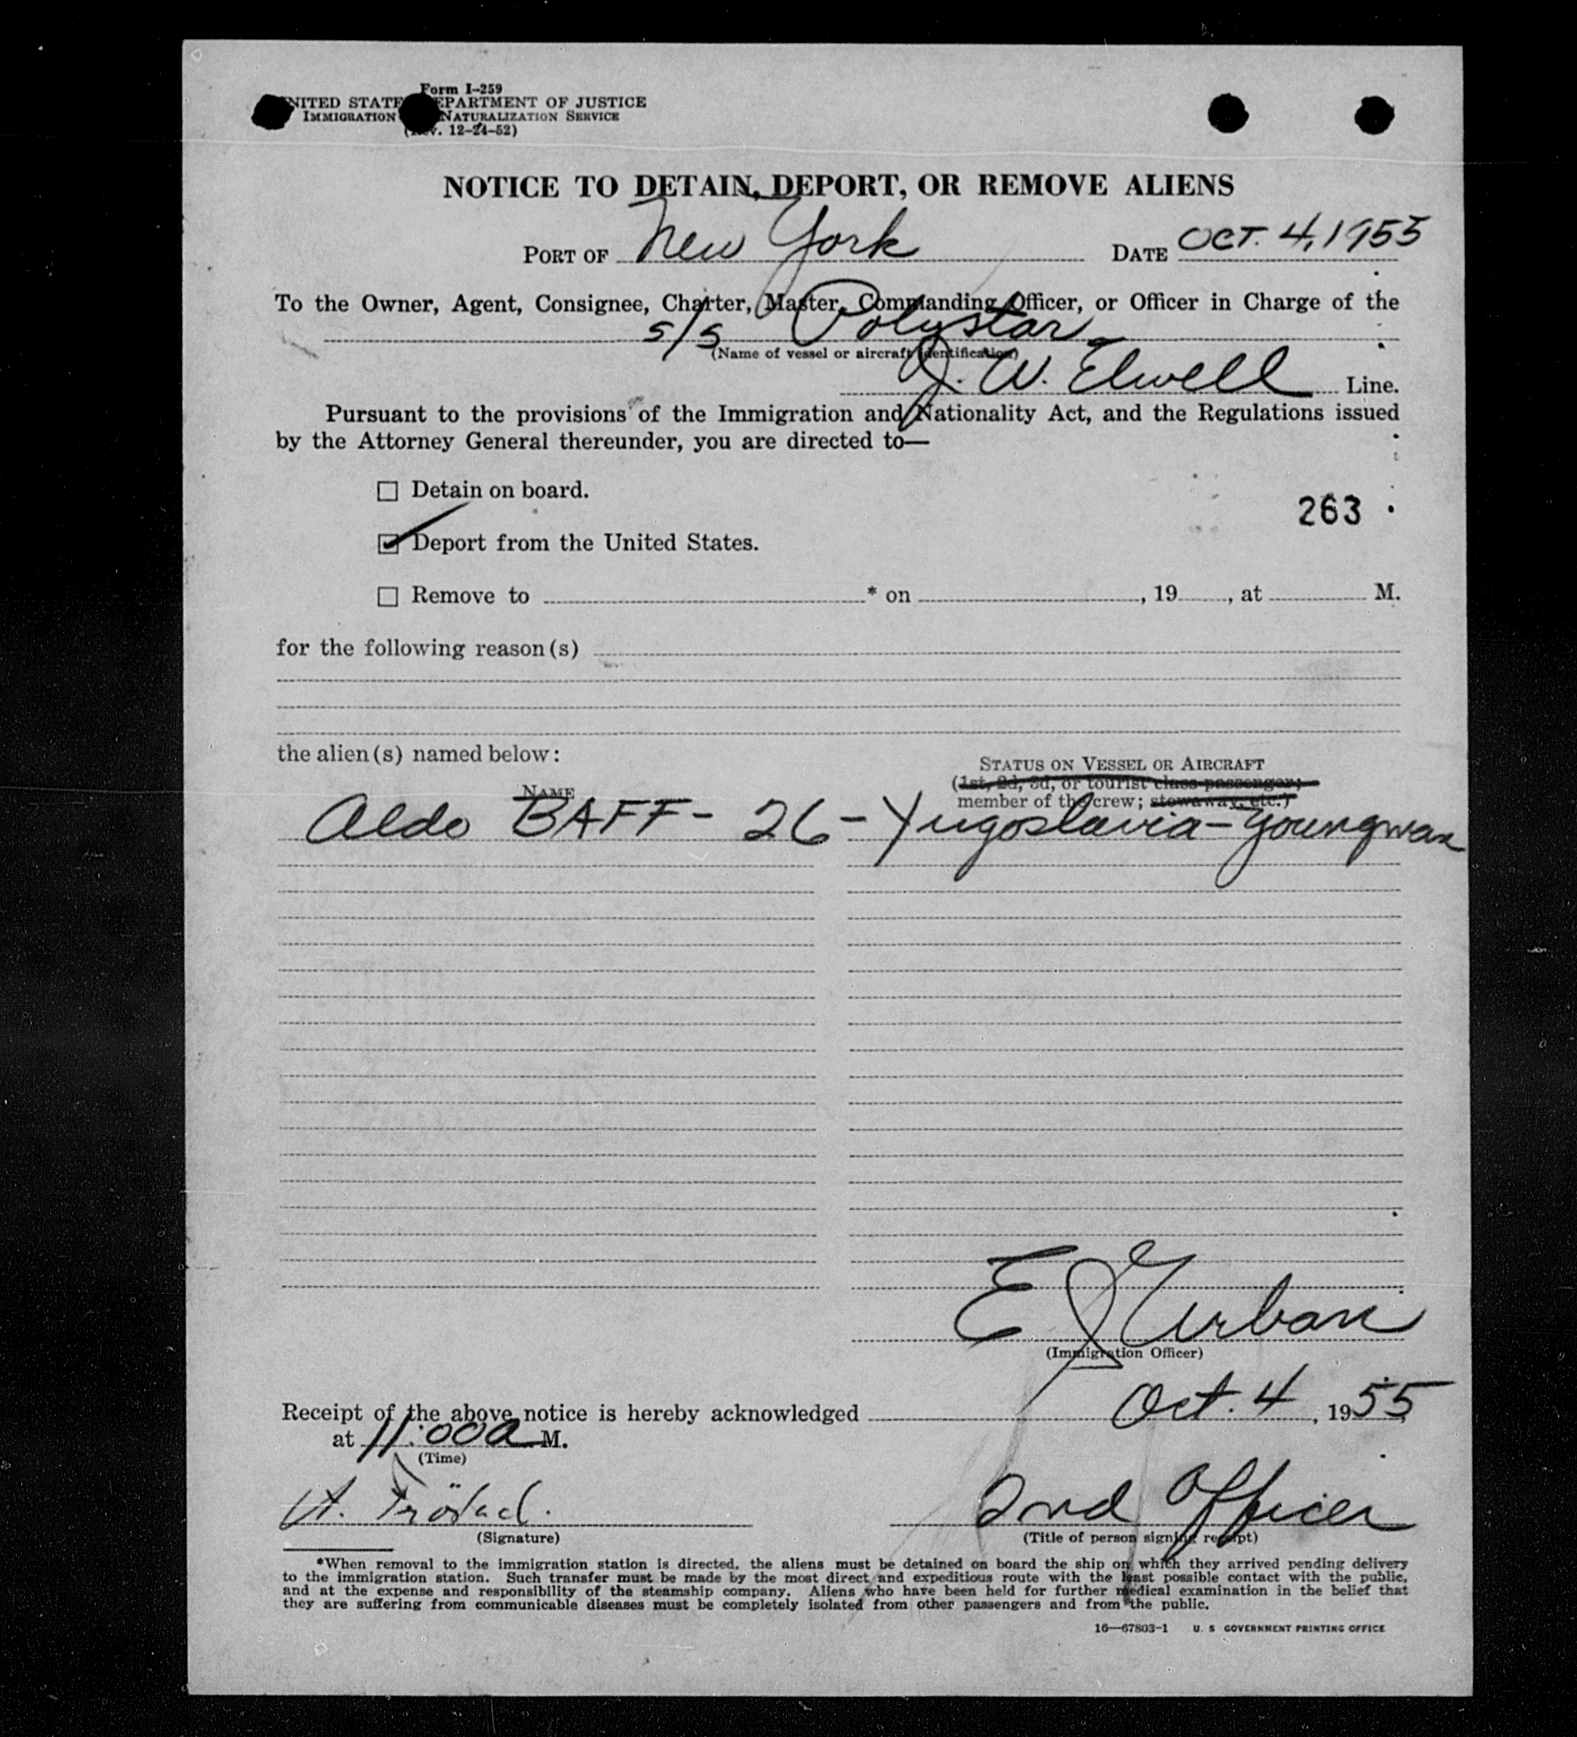 Form I-259
UNITED STATES DEPARTMENT OF JUSTICE
IMMIGRATION NATURALIZATION SERVICE
(Rev. 12-24-52)
NOTICE TO DETAIN, DEPORT, OR REMOVE ALIENS
PORT OF New York DATE OCT. 4, 1955
To the Owner, Agent, Consignee, Charter, Master, Commanding Officer, or Officer in Charge of the
s/s Polystar
(Name of vessel or aircraft identification)
J. W. Elwell Line.
Pursuant to the provisions of the Immigration and Nationality Act, and the Regulations issued
by the Attorney General thereunder, you are directed to—
Detain on board.
263
Deport from the United States.
Remove to * on , 19 , at M.
for the following reason(s)
the alien(s) named below:
STATUS ON VESSEL OR AIRCRAFT
NAME (1st, 2d, 3d, or tourist class passenger;
member of the crew; stowaway, etc.)
Aldo BAFF - 26 - Yugoslavia - Youngman
E J Urban
(Immigration Officer)
Receipt of the above notice is hereby acknowledged Oct. 4, 1955
at 11:00 A M.
(Time)
A. 2nd Officer
(Signature) (Title of person signing receipt)
*When removal to the immigration station is directed, the aliens must be detained on board the ship on which they arrived pending delivery
to the immigration station. Such transfer must be made by the most direct and expeditious route with the least possible contact with the public,
and at the expense and responsibility of the steamship company. Aliens who have been held for further medical examination in the belief that
they are suffering from communicable diseases must be completely isolated from other passengers and from the public.
16—67803-1 U. S GOVERNMENT PRINTING OFFICE